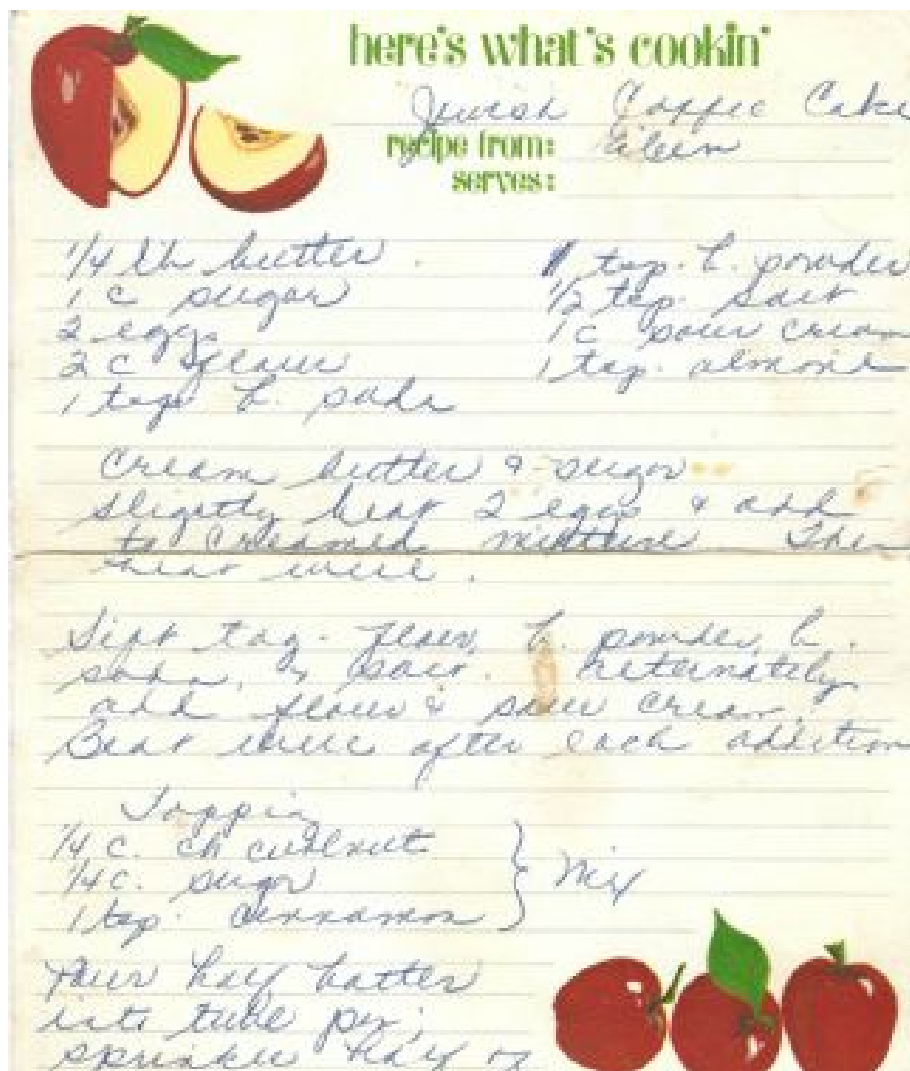 here's what's cookin'
Jewish Coffee Cake
recipe from: Eileen
serves:
1/4 lb butter
1 c sugar
2 eggs
2 c flour
1 tsp b. soda
1 tsp. b. powder
1/2 tsp. salt
1 c sour cream
1 tsp. almond
Cream butter & sugar
slightly beat 2 eggs & add
to creamed mixture. Then
beat well.
Sift tog. flour, b. powder, b.
soda, & salt. Alternately
add flour & sour cream.
Beat well after each addition
Topping
1/4 c. ch walnut
1/4 c. sugar
1 tsp. cinnamon
} Mix
Pour half batter
into tube pan;
sprinkle half of